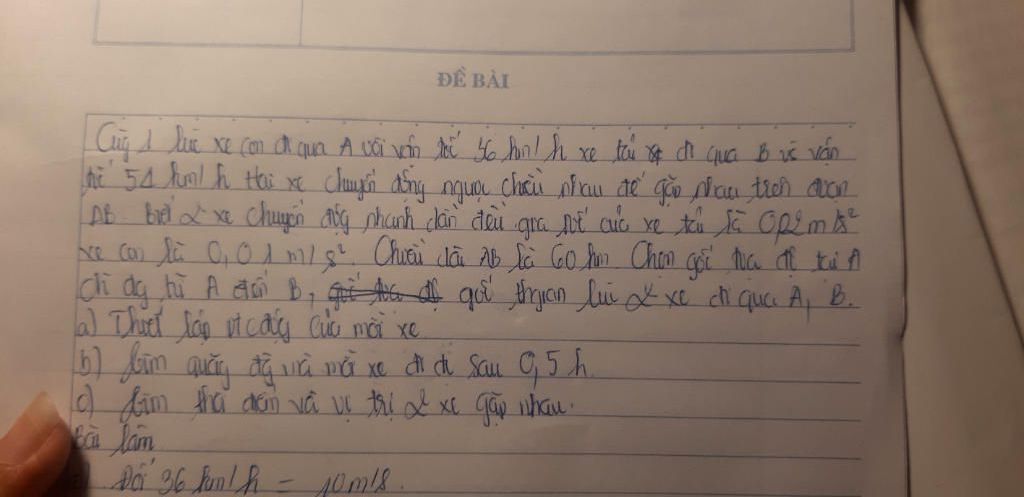 ĐỀ BÀI
Cùg 1 lúc xe con đi qua A với vận tốc 36 km/h xe tải đi qua B với vận
tốc 54 km/h Hai xe chuyển động ngược chiều nhau để gặp nhau trên đoạn
AB. Biết 2 xe chuyển động nhanh dần đều gia tốc của xe tải là 0,02 m/s²
xe con là 0,01 m/s². Chiều dài AB là 60 km. Chọn gốc tọa độ tại A
từ A đến B, gốc tọa độ gốc thgian lúc 2 xe đi qua A, B.
a) Thiết lập của mỗi xe
b) tìm quãng mà mỗi xe đi sau 0,5 h.
c) tìm thời điểm và vị trí 2 xe gặp nhau.
Bài làm
Đổi 36 km/h = 10 m/s.